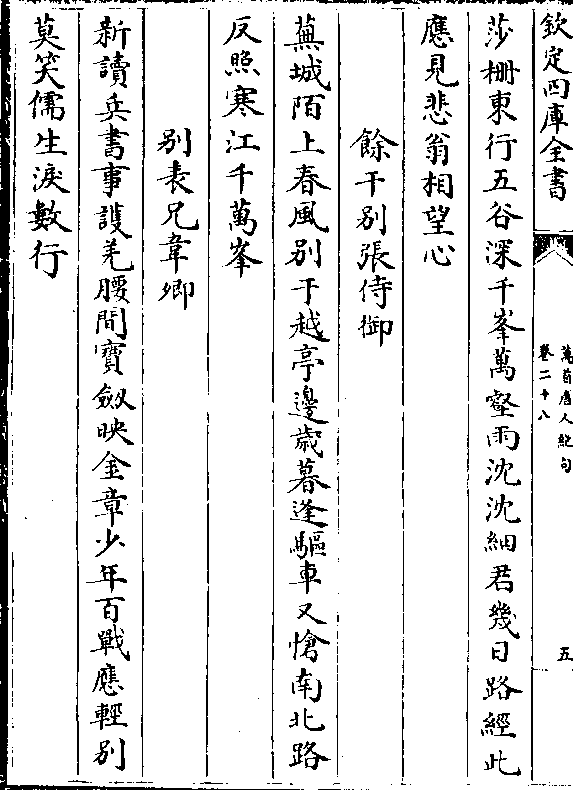 欽定四庫全書
萬首唐人絶句
卷二十八
五
莎柵東行五谷深千峯萬壑雨沈沈細君幾日路經此
應見悲翁相望心
餘干别張侍御
蕪城陌上春風别干越亭邊歲暮逢驅車又愴南北路
反照寒江千萬峯
别表兄韋卿
新讀兵書事護羌腰間寳劔映金章少年百戰應輕别
莫笑儒生淚數行